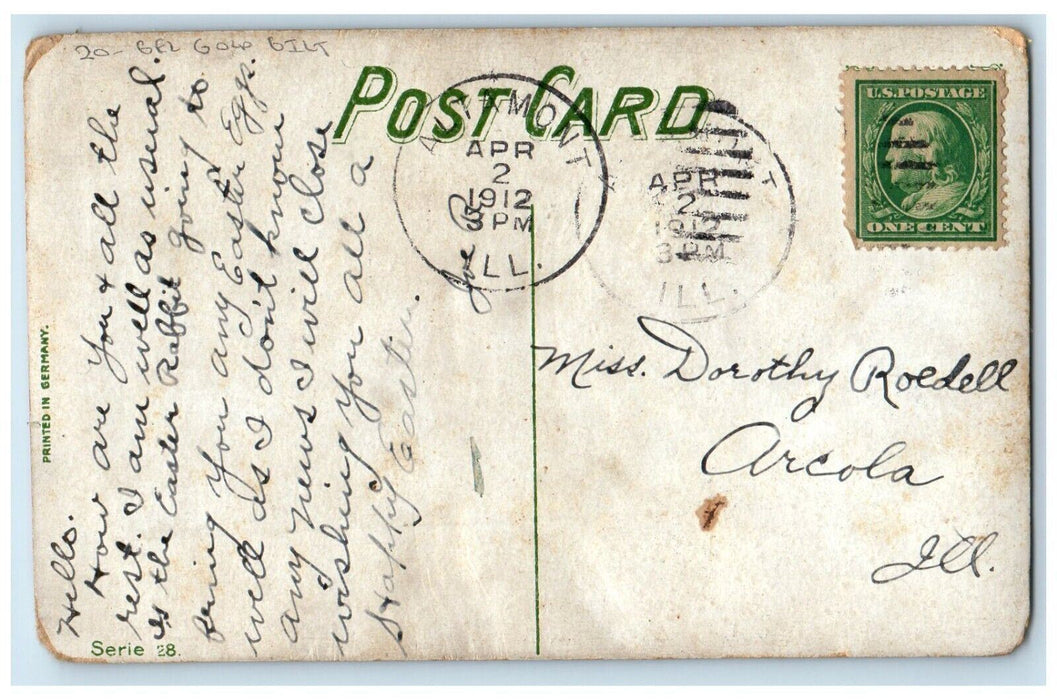 20- GEL GOLD GILT
POST CARD
ALTAMONT
APR
2
1912
3 PM
ILL.
APR
2
1912
3 PM
ILL.
U.S. POSTAGE
ONE CENT
Hello.
How are you & all the
rest. I am well as usual.
Is the Easter Rabbit going to
bring you any Easter Eggs.
well as I don't know
any news I will close
wishing you all a
Happy Easter.
Joe B.
Miss. Dorothy Roedell
Arcola
Ill.
PRINTED IN GERMANY.
Serie 28.